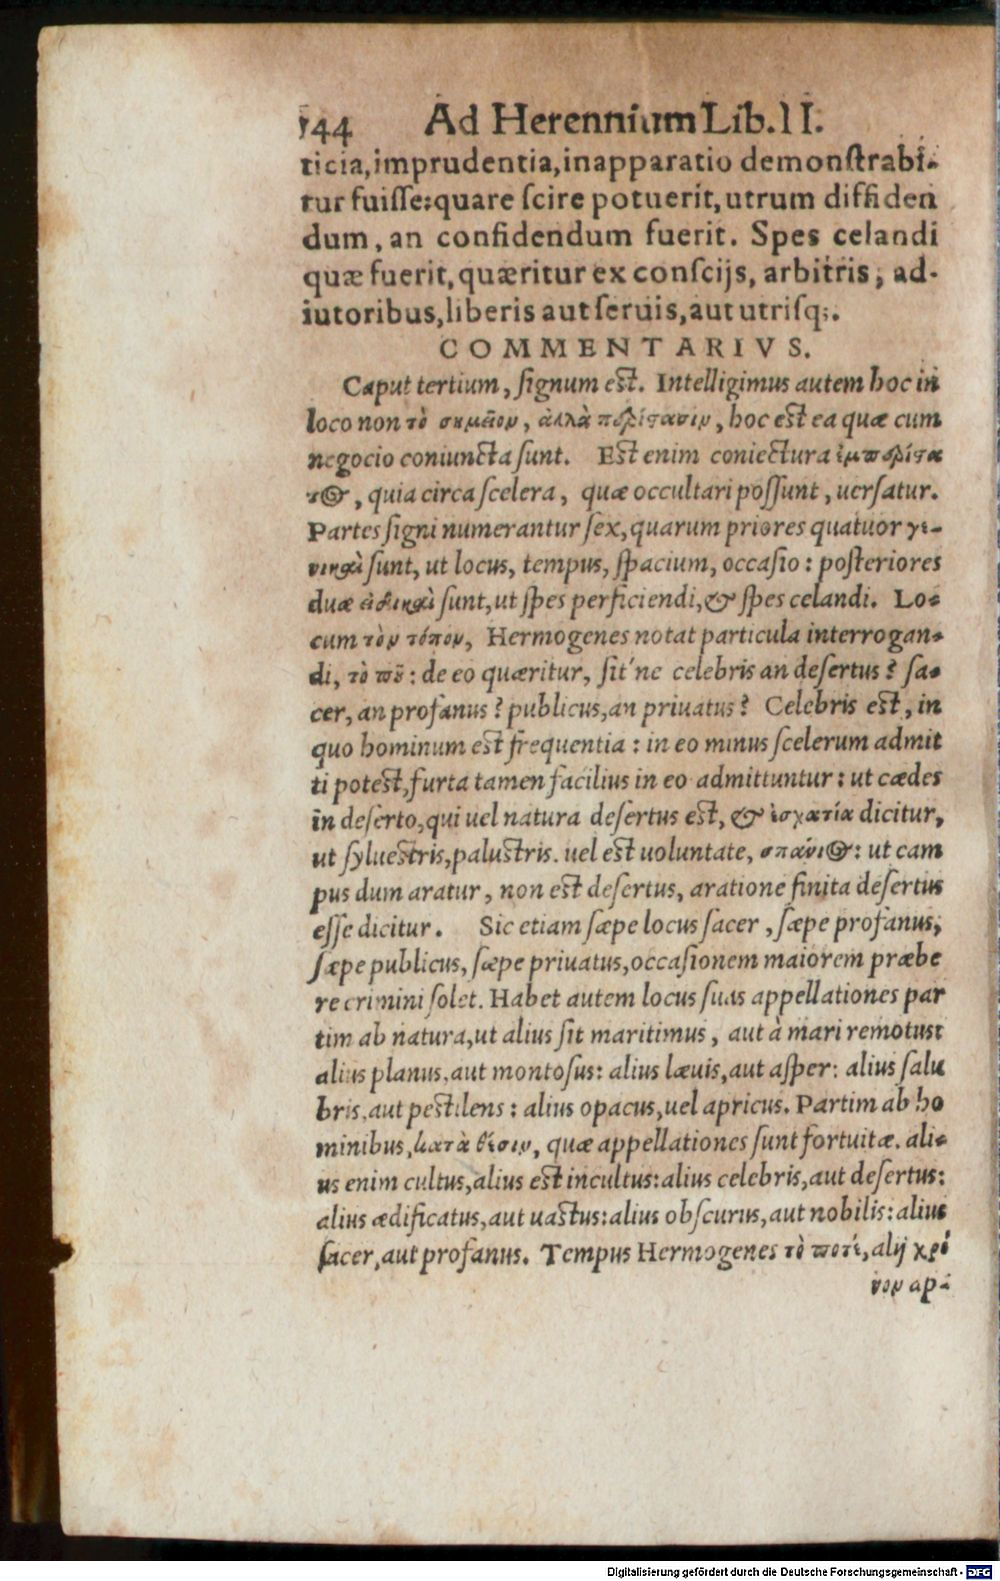 144 Ad Herennium Lib. II.
ticia, imprudentia, inapparatio demonſtrabi-
tur fuiſſe: quare ſcire potuerit, utrum diffiden
dum, an confidendum fuerit. Spes celandi
quæ fuerit, quæritur ex conſcijs, arbitris, ad-
iutoribus, liberis aut ſeruis, aut utriſq;.
COMMENTARIVS.
Caput tertium, ſignum eſt. Intelligimus autem hoc in
loco non τὸ σημεῖον, ἀλλὰ περίστασιν, hoc eſt ea quæ cum
negocio coniuncta ſunt. Eſt enim coniectura ἐμπερίστα
τος, quia circa ſcelera, quæ occultari poſſunt, uerſatur.
Partes ſigni numerantur ſex, quarum priores quatuor γε-
νικαὶ ſunt, ut locus, tempus, ſpacium, occaſio: poſteriores
duæ εἰδικαὶ ſunt, ut ſpes perficiendi, & ſpes celandi. Lo-
cum τὸν τόπον, Hermogenes notat particula interrogan-
di, τὸ ποῦ: de eo quæritur, ſit'ne celebris an deſertus? ſa-
cer, an profanus? publicus, an priuatus? Celebris eſt, in
quo hominum eſt frequentia: in eo minus ſcelerum admit
ti poteſt, furta tamen facilius in eo admittuntur: ut cædes
in deſerto, qui uel natura deſertus eſt, & ἐσχατία dicitur,
ut ſylueſtris, paluſtris. uel eſt uoluntate, σπάνιος: ut cam
pus dum aratur, non eſt deſertus, aratione finita deſertus
eſſe dicitur. Sic etiam ſæpe locus ſacer, ſæpe profanus,
ſæpe publicus, ſæpe priuatus, occaſionem maiorem præbe
re crimini ſolet. Habet autem locus ſuas appellationes par
tim ab natura, ut alius ſit maritimus, aut à mari remotus:
alius planus, aut montoſus: alius læuis, aut aſper: alius ſalu
bris, aut peſtilens: alius opacus, uel apricus. Partim ab ho
minibus, κατὰ θέσιν, quæ appellationes ſunt fortuitæ. ali-
us enim cultus, alius eſt incultus: alius celebris, aut deſertus:
alius ædificatus, aut uaſtus: alius obſcurus, aut nobilis: alius
ſacer, aut profanus. Tempus Hermogenes τὸ ποτέ, alij χρό
νον ap-
Digitalisierung gefördert durch die Deutsche Forschungsgemeinschaft - DFG